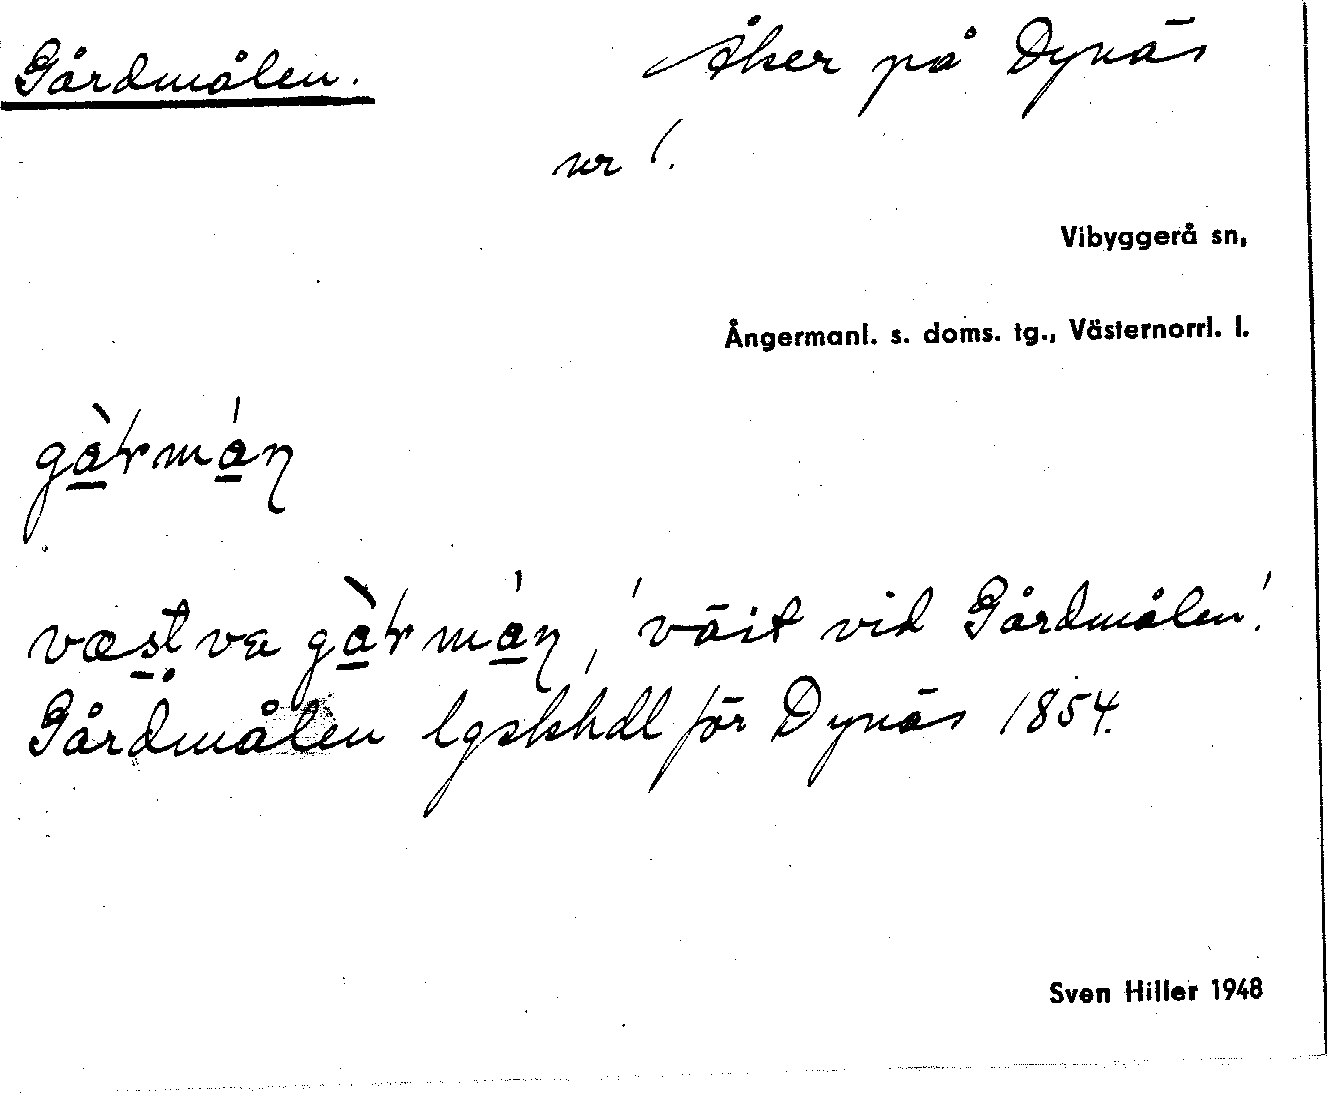 Gårdmålen. Åker på Dynäs
nr 1.
Vibyggerå sn,
Ångermanl. s. doms. tg., Västernorrl. l.
væst va 'väst vid Gårdmålen'.
Gårdmålen lgskhdl för Dynäs 1854.
Sven Hiller 1948